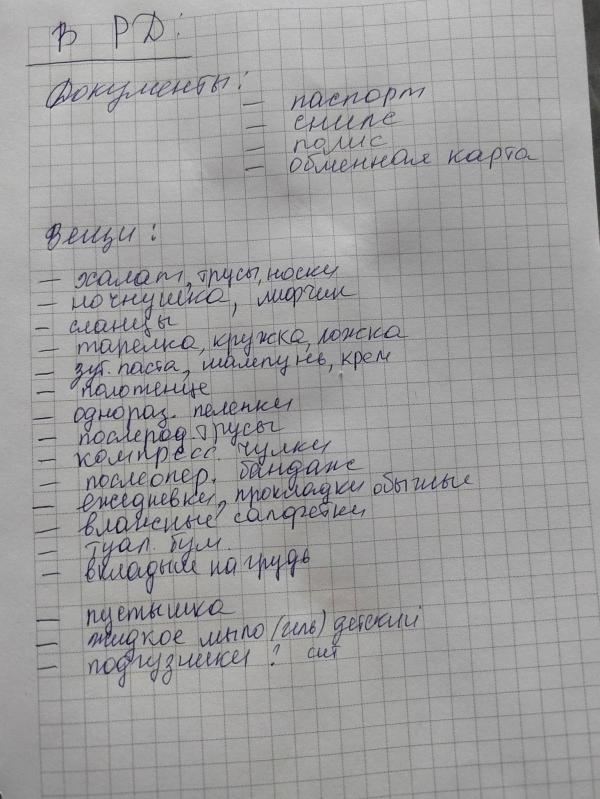 В РД:
Документы:
— паспорт
— снилс
— полис
— обменная карта
Вещи:
— халат, трусы, носки
— ночнушка, лифчик
— сланцы
— тарелка, кружка, ложка
— зуб. паста, шампунь, крем
— полотенце
— однораз. пеленки
— послерод. трусы
— компресс. чулки
— послеопер. бандаж
— ежедневки, прокладки обычные
— влажные салфетки
— туал. бум
— вкладыши на грудь
— пустышка
— жидкое мыло (гель) детский
— подгузники ?